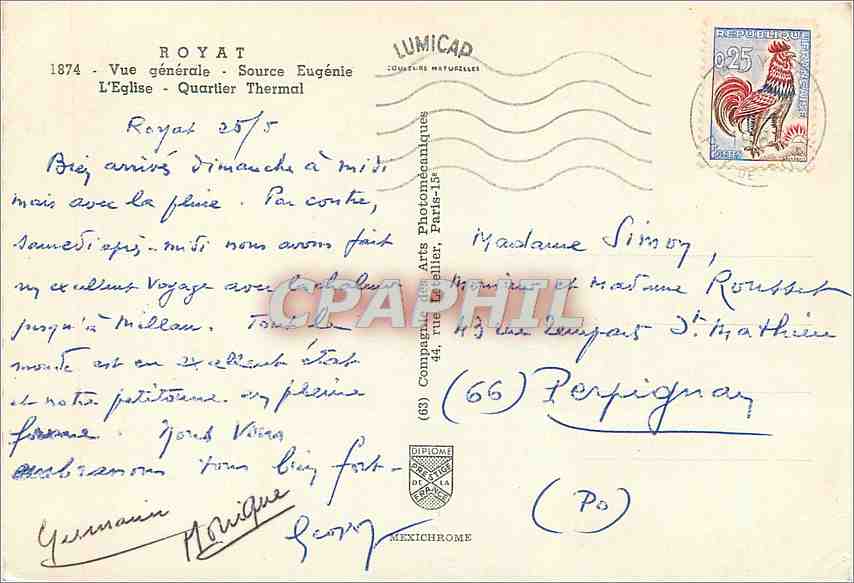 ROYAT
1874 - Vue générale - Source Eugénie
L'Eglise - Quartier Thermal
LUMICAP
COULEURS NATURELLES
REPUBLIQUE FRANÇAISE
0,25
Royat 25/5
Bien arrivés dimanche à midi
mais avec la pluie. Par contre,
samedi après-midi nous avons fait
un excellent voyage avec la chaleur
jusqu'à Millau. Tout le
monde est en excellent état
et notre petitoune en pleine
forme. Nous vous
embrassons tous bien fort-
Germain Monique
Georges
(63) Compagnie des Arts Photomécaniques
44, rue Letellier, Paris-15e
DIPLOME
PRESTIGE
DE LA
FRANCE
MEXICHROME
Madame Simon,
Monsieur et Madame Rousset
43 rue St Mathieu
(66) Perpignan
(Po)
CPAPHIL